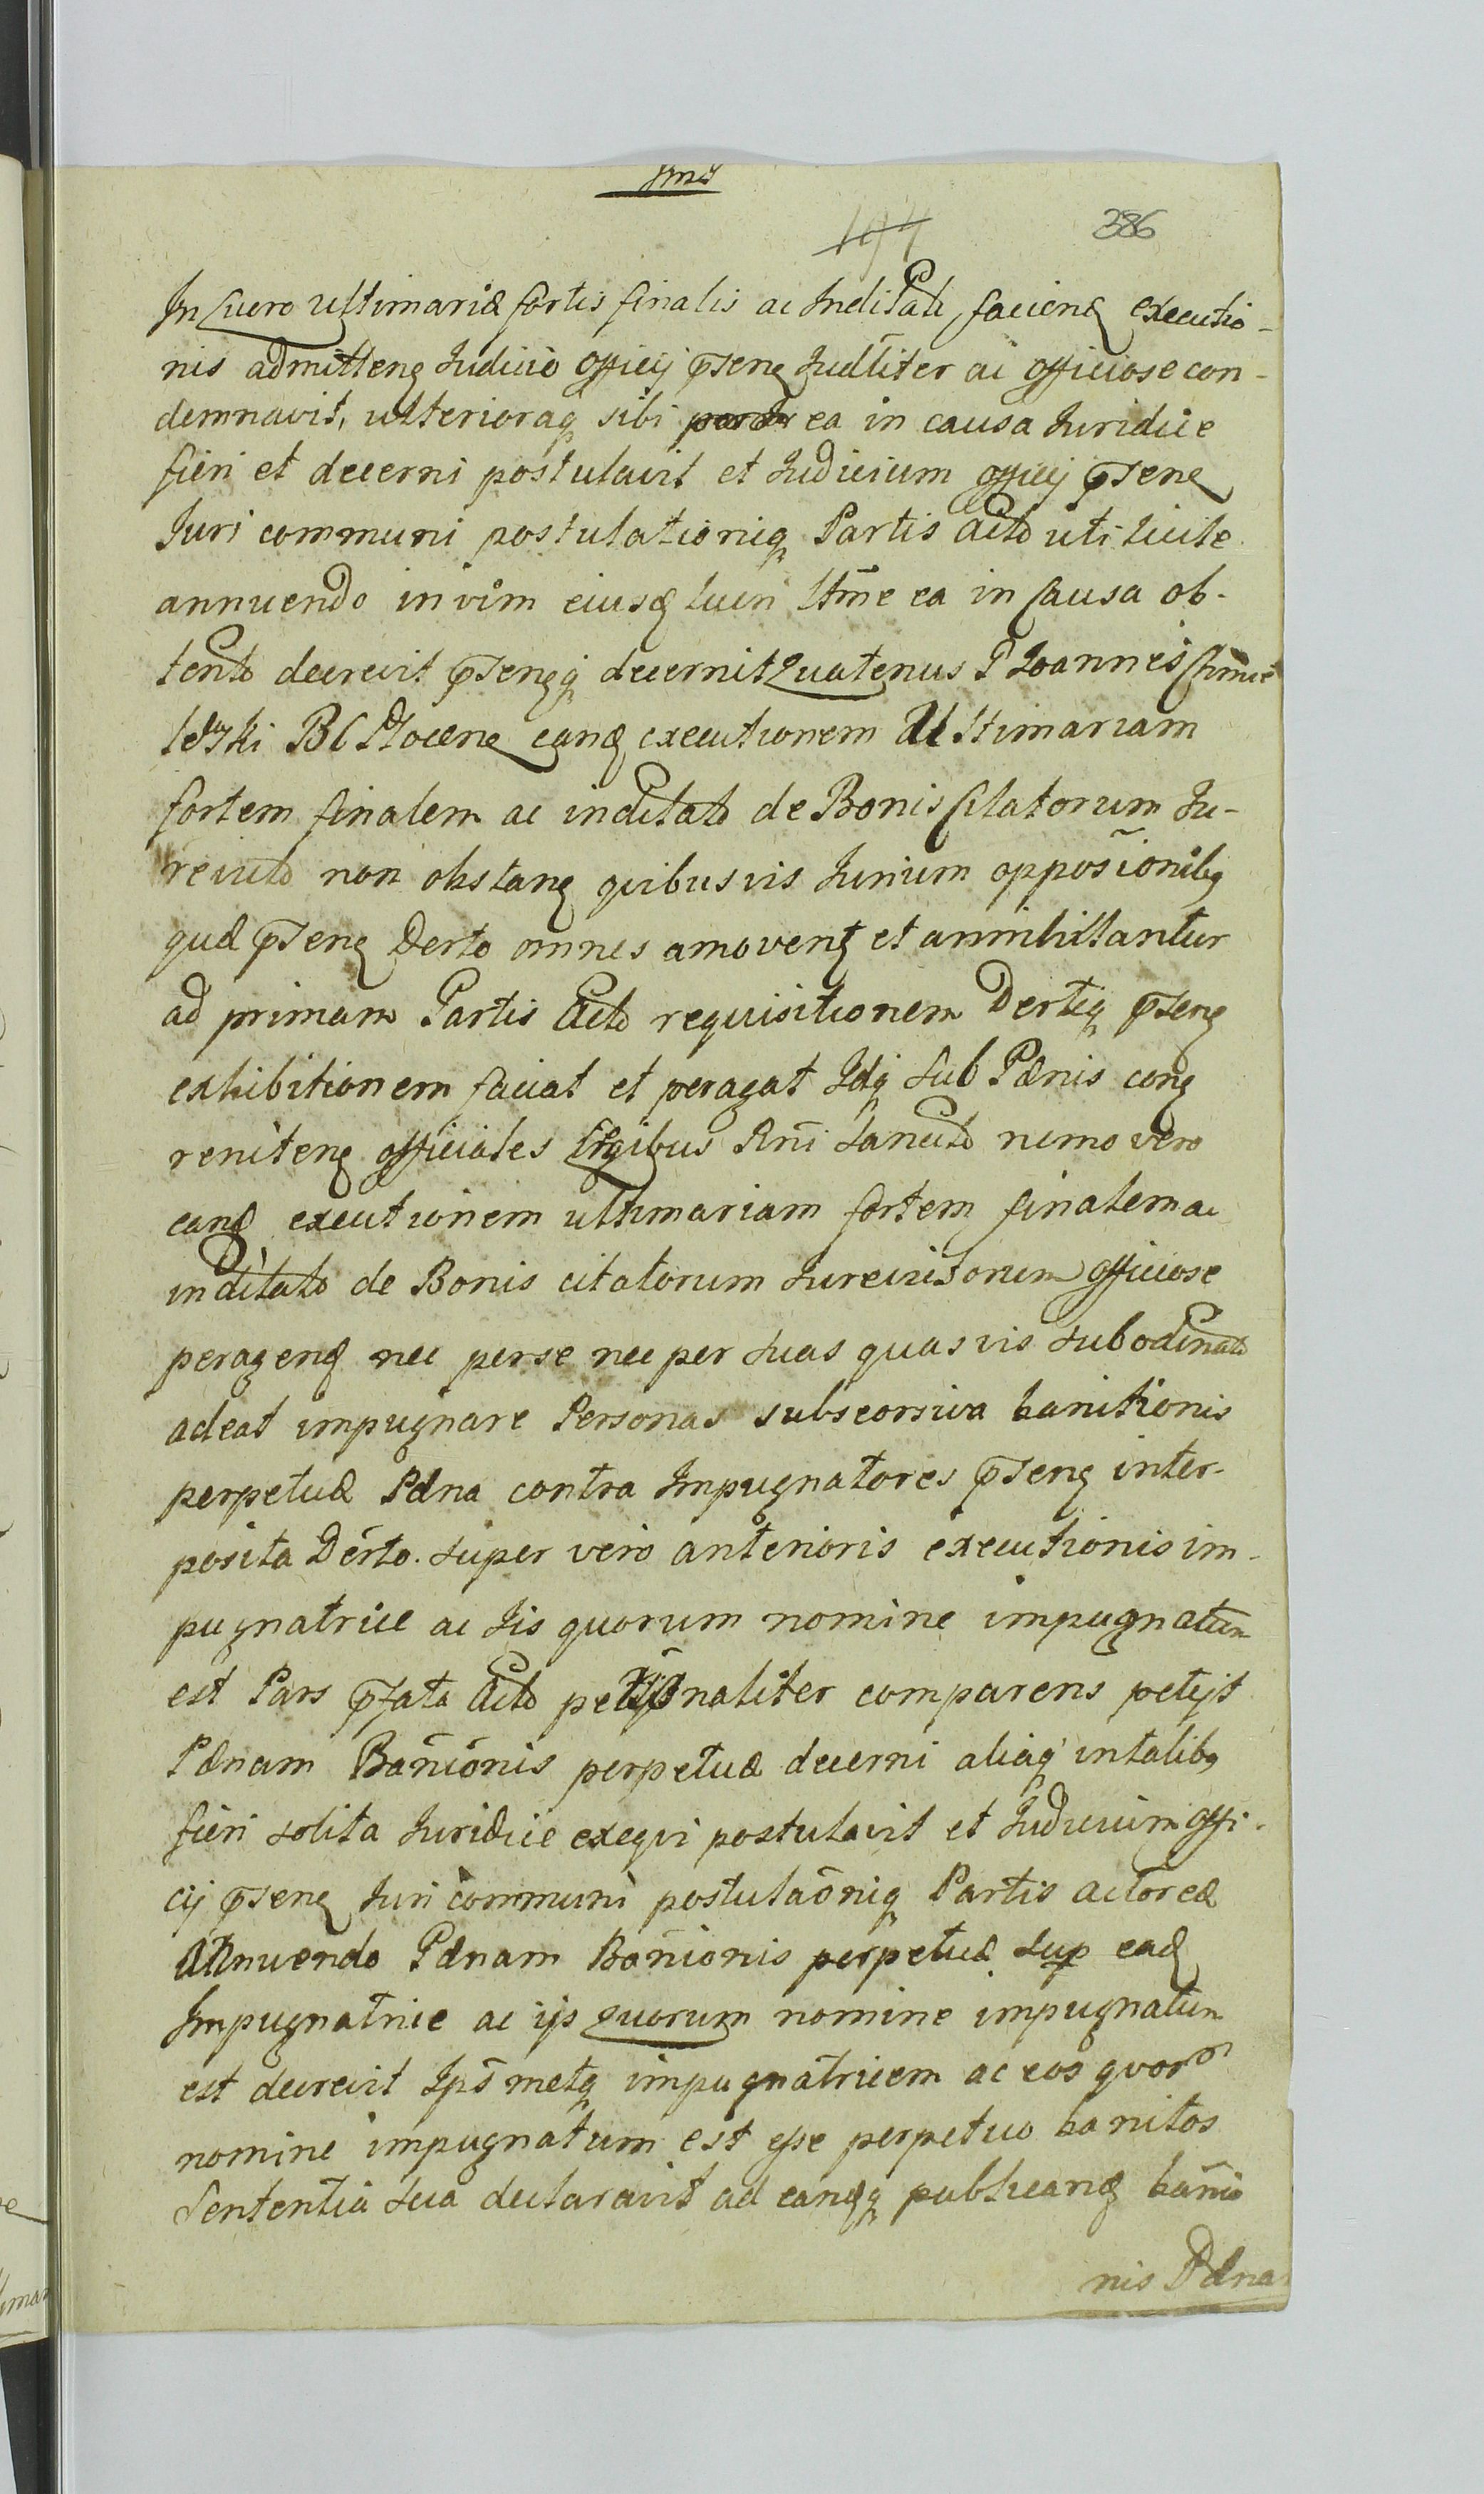 194
386
In Lucro ultimariæ fortis finalis ac Inditati faciend executio-
nis admitteng Judicio Officij pñseng Judlliter ac officiose con-
demnavit, ulterioraq sibi ea in causa Juridice
fieri et decerni postulavit et Judicium officij pñseng
Juri communi postulationiq Partis Acto uti licite
annuendo in vim eiusd lucri Ltme ea in Causa ob-
tento decrevit pñsengq decernit Quatenus P Joannes Chmie
leski B C Plocene eand executionem Ultimariam
fortem finalem ac inditato de Bonis Citatorum Ju-
revicto non obstang quibusvis Jurium opposiõnibq
quæ pñseng Derto omnes amoveng et annihillantur
ad primam Partis Acto requisitionem Dertiq pñseng
exhibitionem faciat et peragat Idq sub Pænis cong
reniteng officiales Legibus Rñi Sancito nemo vero
eand executionem ultimariam fortem finalem ac
inditato de Bonis citatorum Jurevictorum officiose
peragend nec perse nec per suas quasvis subodinato
adeat impugnare Personas subseorsiva banitionis
perpetuæ Pæna contra Impugnatores pñseng inter-
posita Derto. Super vero anterioris executionis im-
pugnatrice ac Iis quorum nomine impugnatum
est Pars pfata Acto personaliter comparens petijt
Pænam Bañionis perpetuæ decerni aliaq in talibq
fieri solita Juridice exequi postulavit et Judicium offi-
cij pñseng Juri communi postulaõniq Partis actoreæ
Annuendo Pænam Bañionis perpetuæ sup ead
Impugnatrice ac ijs Quorum nomine impugnatum
est decrevit Ipsmetq impugnatricem ac eos quor
nomine impugnatum est esse perpetuo banitos
Sententia sua declaravit ad eandq publicand bañio
nis Pæna